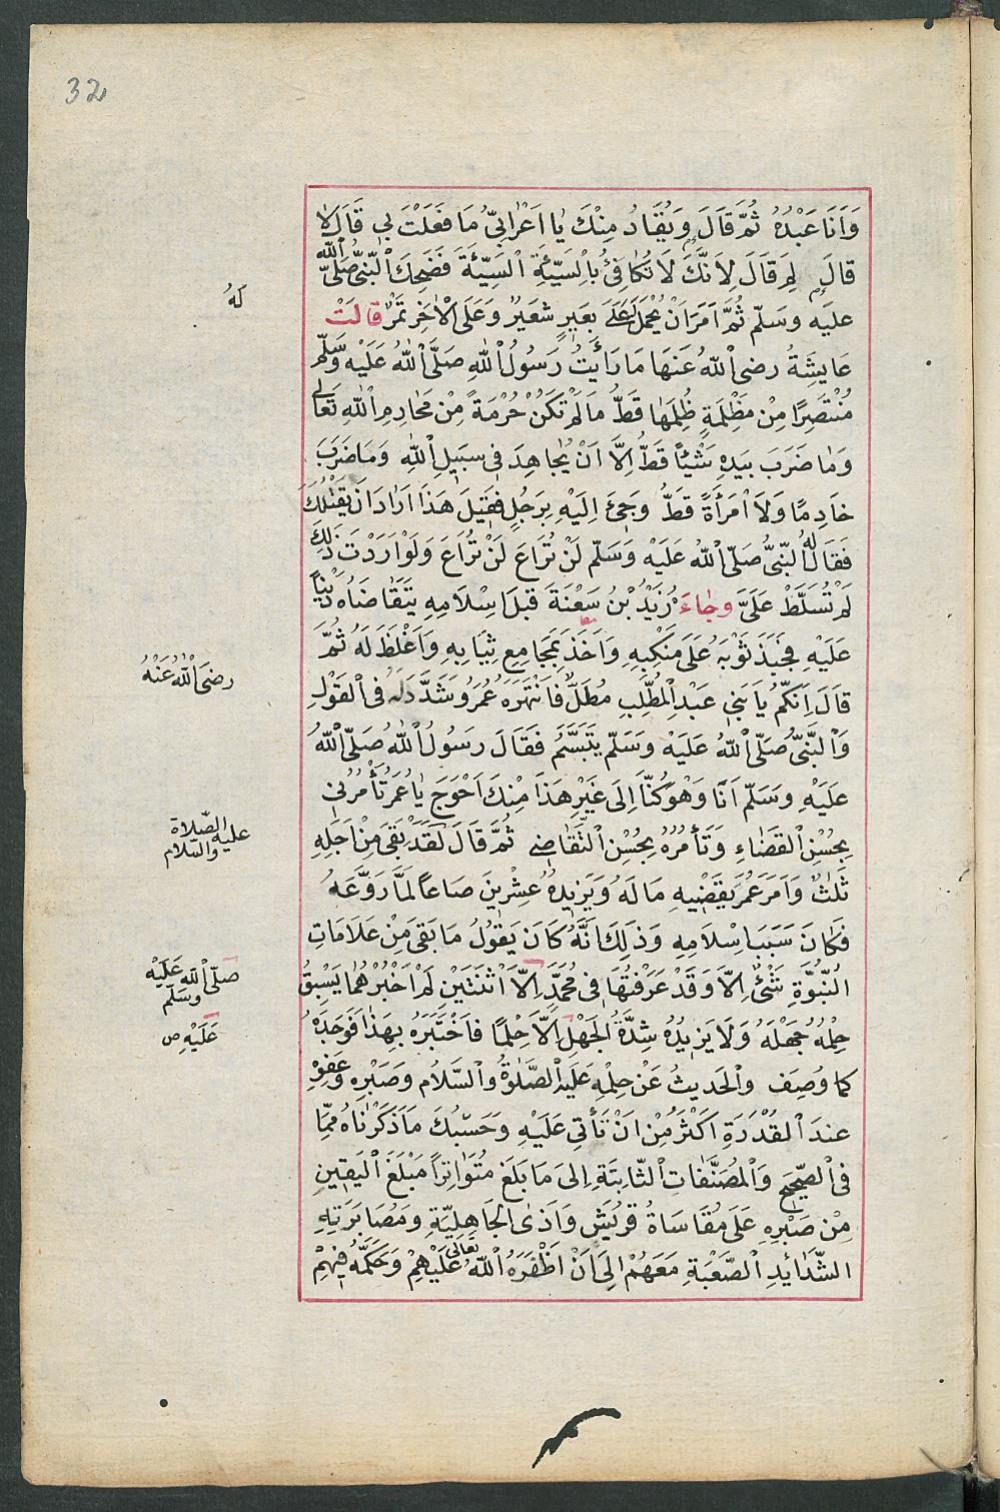 32
وَاَنَا عَبْدُهُ ثُمَّ قَالَ وَيُقَادُ مِنْكَ يٰا اَعْرَابِيُّ مَا فَعَلْتَ بِي قَالَ لٰا
قالَ لِمَ قَالَ لِاَنَّكَ لَا تُكَافِئُ بِالسَّيِّئَةِ السَّيِّئَةَ فَضَحِكَ النَّبِيُّ صَلَّى اللّٰه
عليَه وَسَلّم ثُمَّ اَمَرَ اَنْ يُحْمَلَ عَلَى بَعِيرٍ شَعِيرٌ وَعَلَى الْاٰخِرِ تَمْرٌ قالَتْ
لَهُ
عَايِشَةُ رضى اللّٰهُ عَنهَا مَا رَأَيتُ رَسُولُ اللّٰهِ صَلَّى اللّٰهُ عَلَيْهِ وَسَلّم
مُنْتَصِرًا مِنْ مَظْلِمَةٍ ظُلِمَهَا قَطُّ مَا لَمْ تَكُنْ حُرْمَةً مِنْ مَحَارِمِ اللّٰهِ تَعَالٰى
وَمٰا ضَرَبَ بيَدِهِ شَيْئًا قَطُّ اِلَّا اَنْ يُجَاهِدَ فى سَبِيلِ اللّٰهِ وَمَا ضَرَبَ
خَادِمًا وَلَا اْمرَأَةً قَطُّ وَجِئَ اِلَيْهِ بِرَجُلٍ فَقِيلَ هَذَا اَرَادَ اَنْ يَقْتُلَكَ
فَقَالَ لهُ النَّبِىُّ صَلّى اللّٰهُ عَلَيْه وَسَلّم لَنْ تُرَاعَ لَنْ تُرَاعَ وَلَوْ اَرَدْتَ ذٰلِكَ
لَمْ تُسَلَّطْ عَلَىَّ وجٰاءَهُ زَيْدُ بْنُ سَعْنَةَ قبْلَ اِسْلَامِهِ يَتَقَاضَاهُ دَيْنًا
عَلَيْهِ فَجَبَذَ ثَوْبَهُ عَلَى مَنْكِبِهِ وَاَخَذَ بِمَجَامِعِ ثِيَابِهِ وَاَغْلَظَ لَهُ ثُمَّ
قَالَ اِنَّكُمْ يَا بَنِي عَبْدِ الْمُطَّلِبِ مُطَلٌ فَانْتَهَرَهُ عُمَرُ وَشَدَّدَ لَهُ فى القَوْلِ
رضىَ اللّٰهُ عَنْهُ
وَالنَّبِىُّ صَلّى اللّٰهُ عَلَيَهْ وَسَلّم يَتَبَسَّمُ فَقَالَ رَسُولُ اللّٰهُ صَلّى اللّٰهُ
عَلَيْهِ وَسَلّم اَنَا وَهُوَ كُنَّا اِلَى غَيْرِ هَذَا مِنْكَ اَحْوَجَ يٰا عُمَرُ تَأْمُرُنِي
بِحُسْنِ القَضٰاءِ وَتَأْمُرُهُ بِحُسْنِ التَّقَاضِى ثُمَّ قَالَ لَقَدْ بَقِىَ مِنْ اَجَلِهِ
عليه الصّلاة والسّلام
ثَلٰثٌ وَاَمَرَ عُمَرَ يَقْضِيهِ مَا لَهُ وَيَزِيدُهُ عِشْرِينَ صَاعًا لَمَّا رَوَّعَهُ
فكَانَ سَبَبَ اِسْلَامِهِ وَذٰلِكَ اَنَّهُ كَانَ يَقُولُ مَا بَقىَ مِنْ عَلَامَاتِ
النُّبُوَّةِ شَئٌ اِلاَّ وَقَدْ عَرَفْتُهَا فِى مُحَمَّدٍ اِلاَّ اثْنَتَيْنِ لَمْ اُخْبُرْهُمَا يَسْبِقُ
صَلّى اللّٰه عَلَيْه وَسَلّم
حِلْمُهُ جَهْلَهُ وَلَا يَزِيدُهُ شِدَّةُ الْجَهْلِ اِلاَّ حِلْمًا فَاخْتَبَرَهُ بِهَذَا فَوَجَدَهُ
عَلَيْهِ ص
كما وُصِفَ والْحَديثُ عَنْ حِلْمِهِ عَليَه الصَّلٰوةُ وَالسَّلَام وَصَبْرِهِ وَعَفْوِهِ
عندَ المَقْدُرَةِ اَكْثَرُ مِنْ اَنْ نَأْتِىَ عَلَيْهِ وَحَسْبُكَ مَا ذَكَرْنَاهُ مِمَّا
فى الصَّحِيحِ وَالْمُصَنَّفَاتِ الثَّابِتَةِ اِلى مَا بَلَغَ مُتَوَاتِرًا مَبْلَغَ الْيَقِينِ
مِنْ صَبْرِهِ عَلَى مُقَاسَاةِ قُرَيْشٍ وَاَذٰى الْجَاهِلِيَّةِ وَمُصَابَرَتِهِ
الشَّدَائِدِ الصَّعْبَةِ مَعَهُمْ اِلَى اَنْ اَظْفَرَهُ اللّٰهُ تعالى عَلَيْهِمْ وَحَكَّمَهُ فِيهِمْ